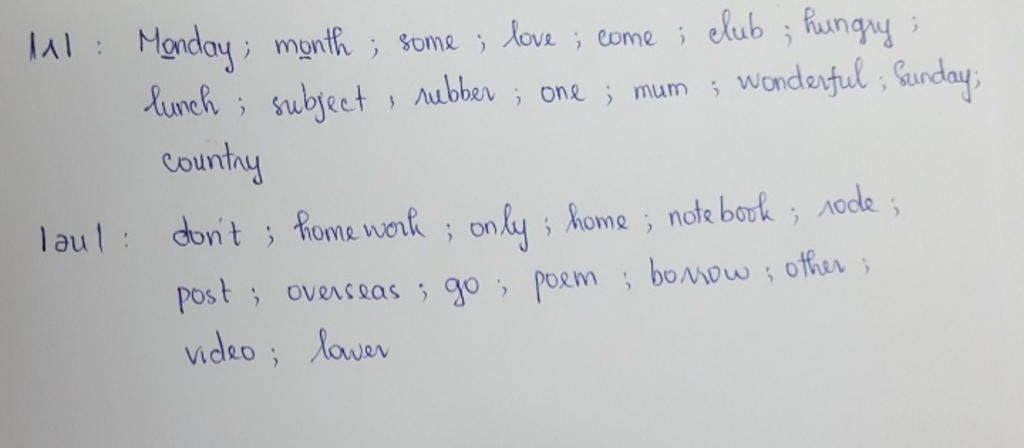 /ʌ/ : Monday ; month ; some ; love ; come ; club ; hungry ;
lunch ; subject ; rubber ; one ; mum ; wonderful ; Sunday ;
country
/əu/ : don't ; homework ; only ; home ; notebook ; rode ;
post ; overseas ; go ; poem ; borrow ; other ;
video ; lower